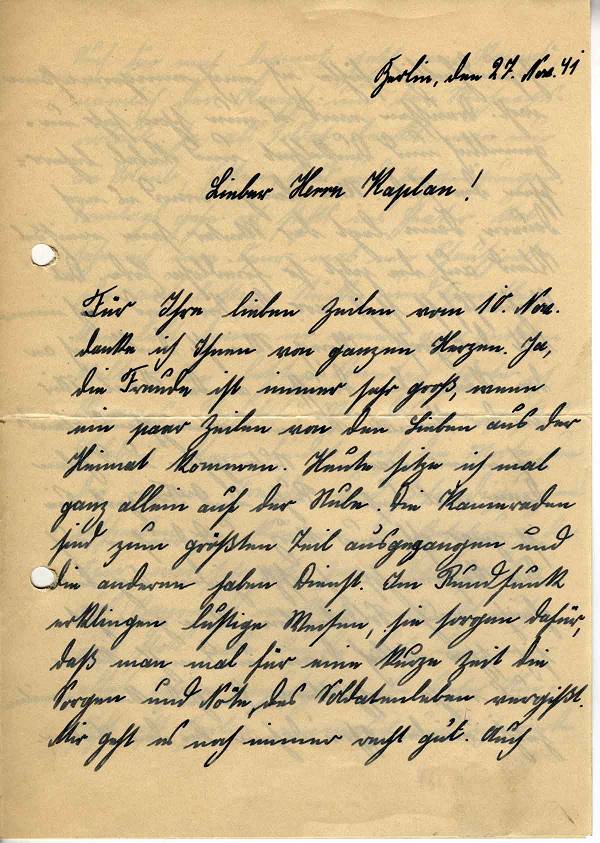 Berlin, den 27. Nov. 41
Lieber Herrn Kaplan!
Für Ihre lieben Zeilen vom 10. Nov.
danke ich Ihnen von ganzen Herzen. Ja,
die Freude ist immer sehr groß, wenn
ein paar Zeilen von den Lieben aus der
Heimat kommen. Heute sitze ich mal
ganz allein auf der Stube. Die Kameraden
sind zum größten Teil ausgegangen und
die anderen haben Dienst. Im Rundfunk
erklingen lustige Weisen, sie sorgen dafür,
daß man mal für eine kurze Zeit die
Sorgen und Nöte, des Soldatenleben vergißt.
Mir geht es noch immer recht gut. Auch